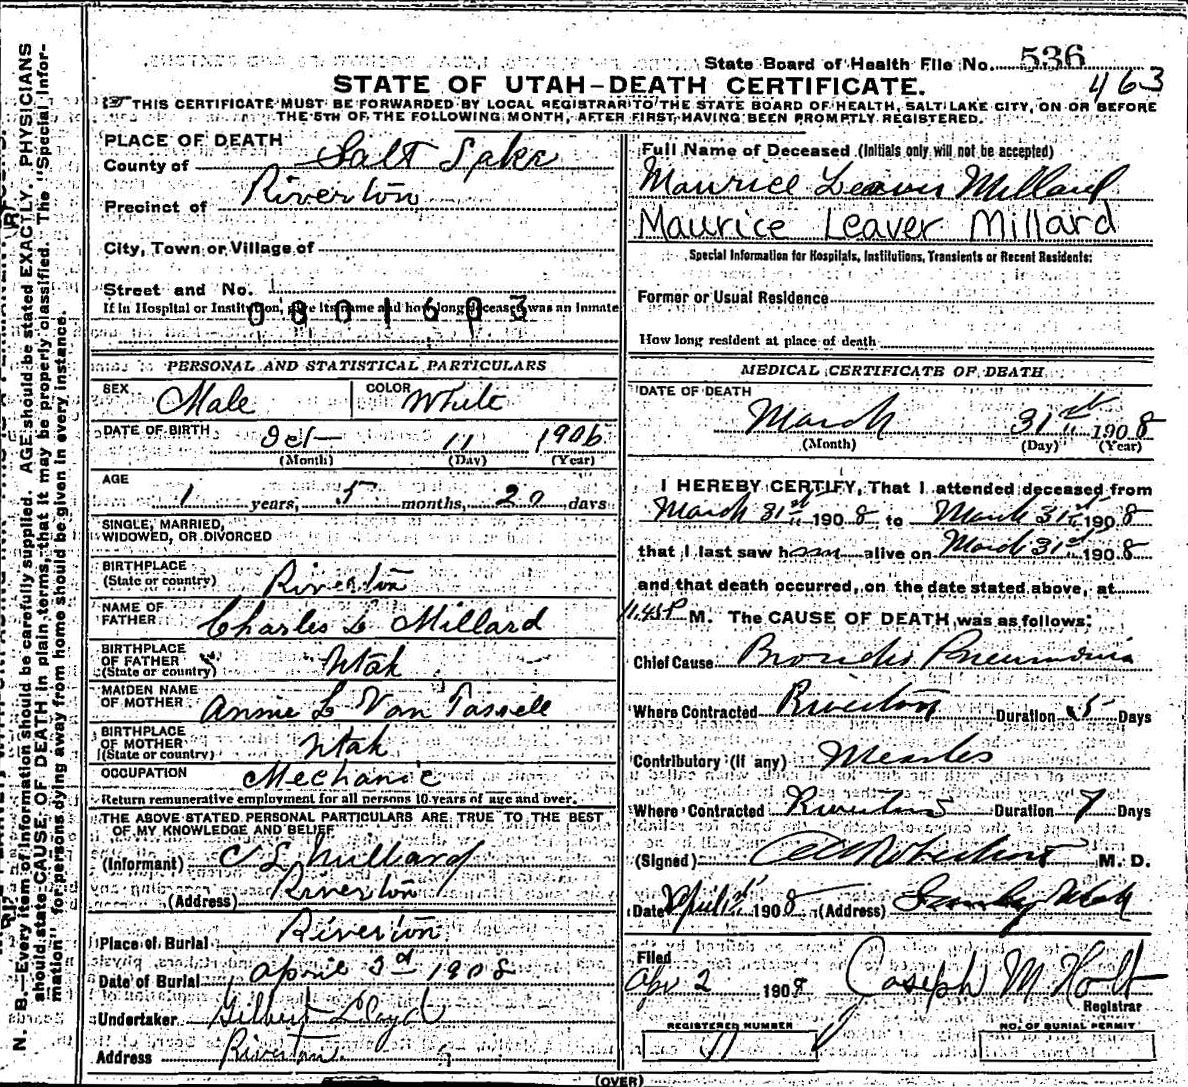 State Board of Health File No. 536
463
STATE OF UTAH—DEATH CERTIFICATE.
THIS CERTIFICATE MUST BE FORWARDED BY LOCAL REGISTRAR TO THE STATE BOARD OF HEALTH, SALT LAKE CITY, ON OR BEFORE
THE 5TH OF THE FOLLOWING MONTH, AFTER FIRST HAVING BEEN PROMPTLY REGISTERED.
PLACE OF DEATH
County of Salt Lake
Precinct of Riverton
City, Town or Village of
Street and No.
If in Hospital or Institution, give its name and how long deceased was an inmate
0801603
PERSONAL AND STATISTICAL PARTICULARS
SEX Male COLOR White
DATE OF BIRTH Oct 11 1906
(Month) (Day) (Year)
AGE
1 years, 5 months, 20 days
SINGLE, MARRIED,
WIDOWED, OR DIVORCED
BIRTHPLACE
(State or country) Riverton
NAME OF
FATHER Charles L Millard
BIRTHPLACE
OF FATHER
(State or country) Utah
MAIDEN NAME
OF MOTHER Annie L Van Tassell
BIRTHPLACE
OF MOTHER
(State or country) Utah
OCCUPATION Mechanic
Return remunerative employment for all persons 10 years of age and over.
THE ABOVE STATED PERSONAL PARTICULARS ARE TRUE TO THE BEST
OF MY KNOWLEDGE AND BELIEF
(Informant) C L Millard
(Address) Riverton
Place of Burial Riverton
Date of Burial April 3d 1908
Undertaker Gilbert Lloyd
Address Riverton
Full Name of Deceased (Initials only will not be accepted)
Maurice Leaver Millard
Maurice Leaver Millard
Special Information for Hospitals, Institutions, Transients or Recent Residents:
Former or Usual Residence
How long resident at place of death
MEDICAL CERTIFICATE OF DEATH
DATE OF DEATH
March 31st 1908
(Month) (Day) (Year)
I HEREBY CERTIFY, That I attended deceased from
March 31st 1908 to March 31st 1908
that I last saw him alive on March 31st 1908
and that death occurred, on the date stated above, at
11.45 P M. The CAUSE OF DEATH was as follows:
Chief Cause Broncho Pneumonia
Where Contracted Riverton Duration 5 Days
Contributory (if any) Measles
Where Contracted Riverton Duration 7 Days
(Signed) Robertson M. D.
Date April 1st 1908 (Address)
Filed
Apr 2 1908 Joseph M Holt
Registrar
REGISTERED NUMBER
11
NO. OF BURIAL PERMIT
(OVER)
N. B.—Every item of information should be carefully supplied. AGE should be stated EXACTLY. PHYSICIANS
should state CAUSE OF DEATH in plain terms, that it may be properly classified. The "Special Infor-
mation" for persons dying away from home should be given in every instance.